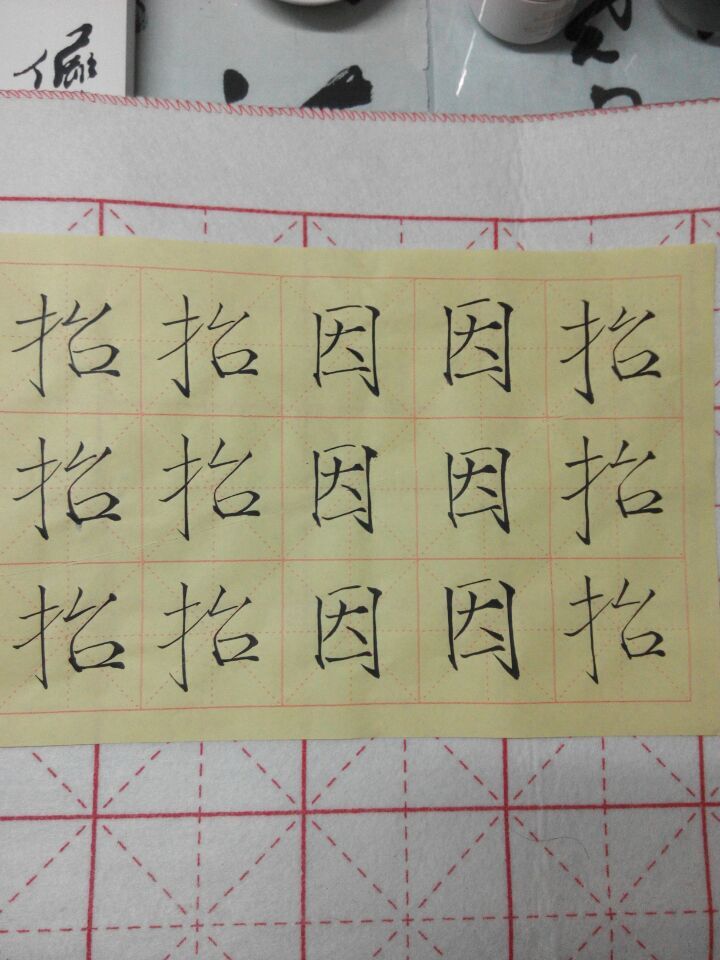 抬抬因因抬
抬抬因因抬
抬抬因因抬